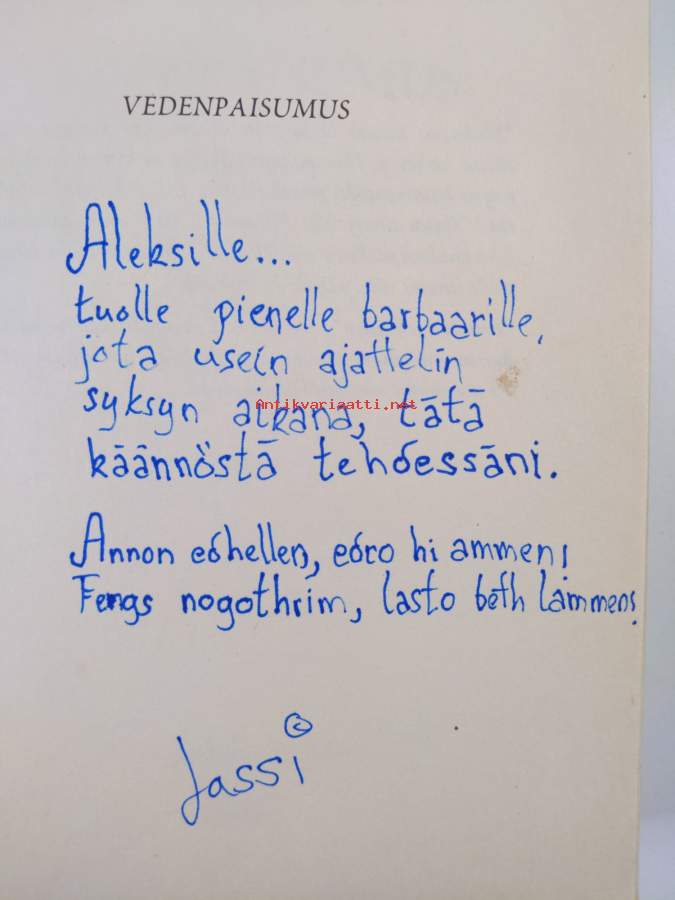 VEDENPAISUMUS
Aleksille...
tuolle pienelle barbaarille,
jota usein ajattelin
syksyn aikana, tātā
Antikvariaatti.net
kāānnöstā tehdessāni.
Annon edhellen, edro hi ammen!
Fengs nogothrim, lasto beth lammens!
Jassi